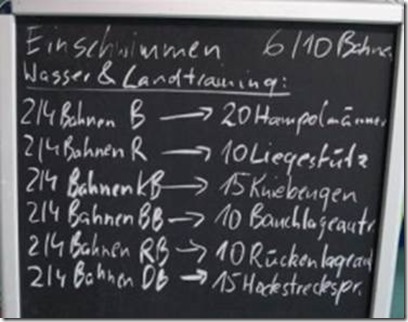 Einschwimmen 6/10 Bahne
Wasser & Landtraining:
2/4 Bahnen B → 20 Hampelmänner
2/4 Bahnen R → 10 Liegestütz
2/4 Bahnen KB → 15 Kniebeugen
2/4 Bahnen BB → 10 Bauchlageautr
2/4 Bahnen RB → 10 Rückenlageau
2/4 Bahnen DB → 15 Hockstreckspr.